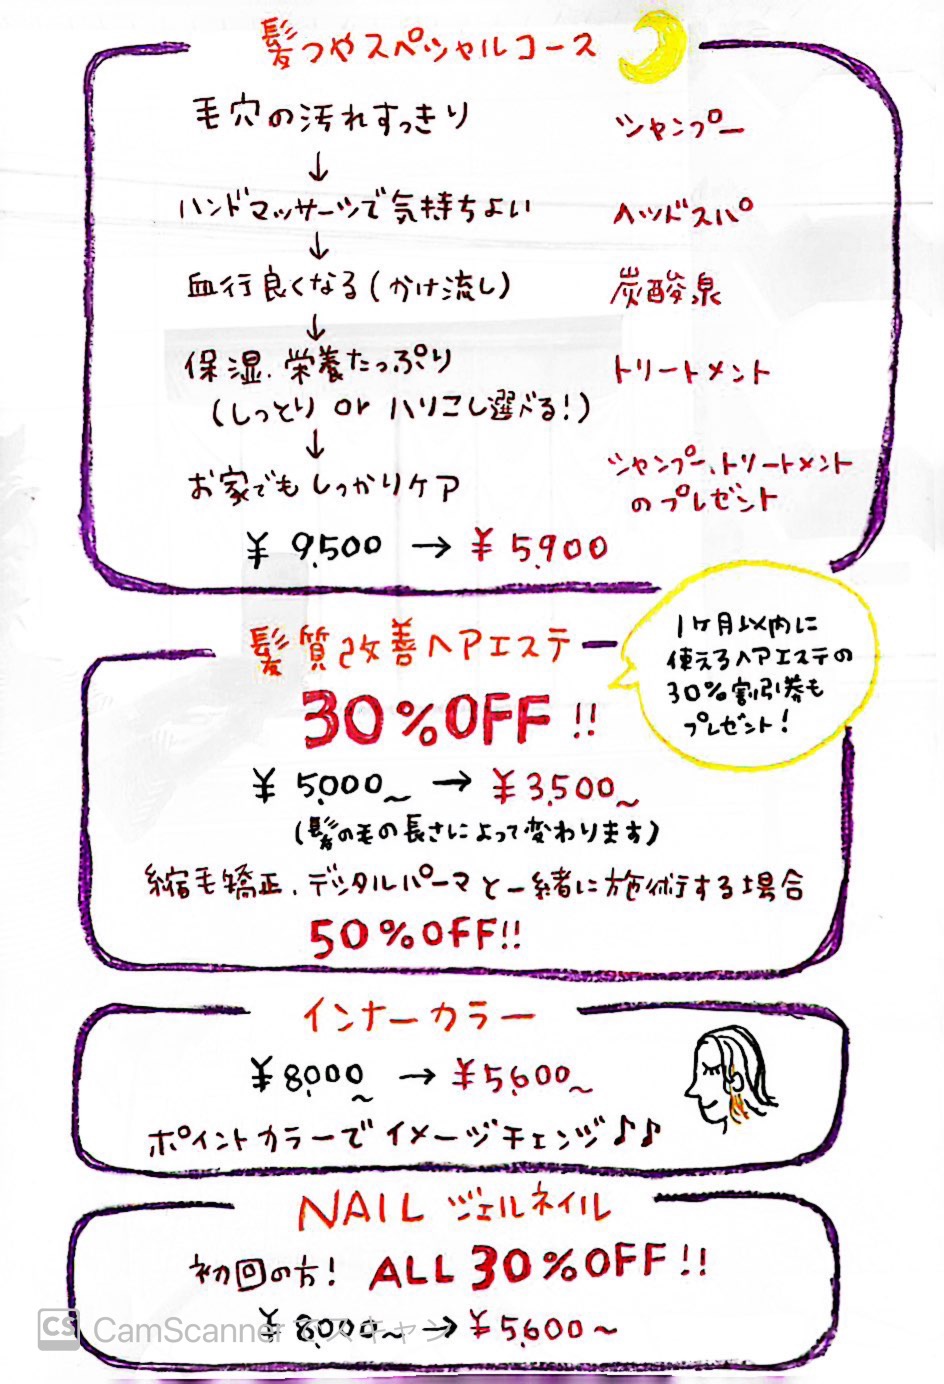 髪つやスペシャルコース
毛穴の汚れすっきり シャンプー
↓
ハンドマッサージで気持ちよい ヘッドスパ
↓
血行良くなる(かけ流し) 炭酸泉
↓
保湿、栄養たっぷり トリートメント
(しっとり or ハリこし選べる!)
↓
お家でもしっかりケア シャンプー、トリートメント
のプレゼント
¥9,500 → ¥5,900
髪質改善ヘアエステ
30%OFF!!
1ヶ月以内に
使えるヘアエステの
30%割引券も
プレゼント!
¥5,000~ → ¥3,500~
(髪の毛の長さによって変わります)
縮毛矯正、デジタルパーマと一緒に施術する場合
50%OFF!!
インナーカラー
¥8,000~ → ¥5,600~
ポイントカラーでイメージチェンジ♪♪
NAIL ジェルネイル
初回の方! ALL 30%OFF!!
¥8,000~ → ¥5,600~
CS CamScannerでスキャン